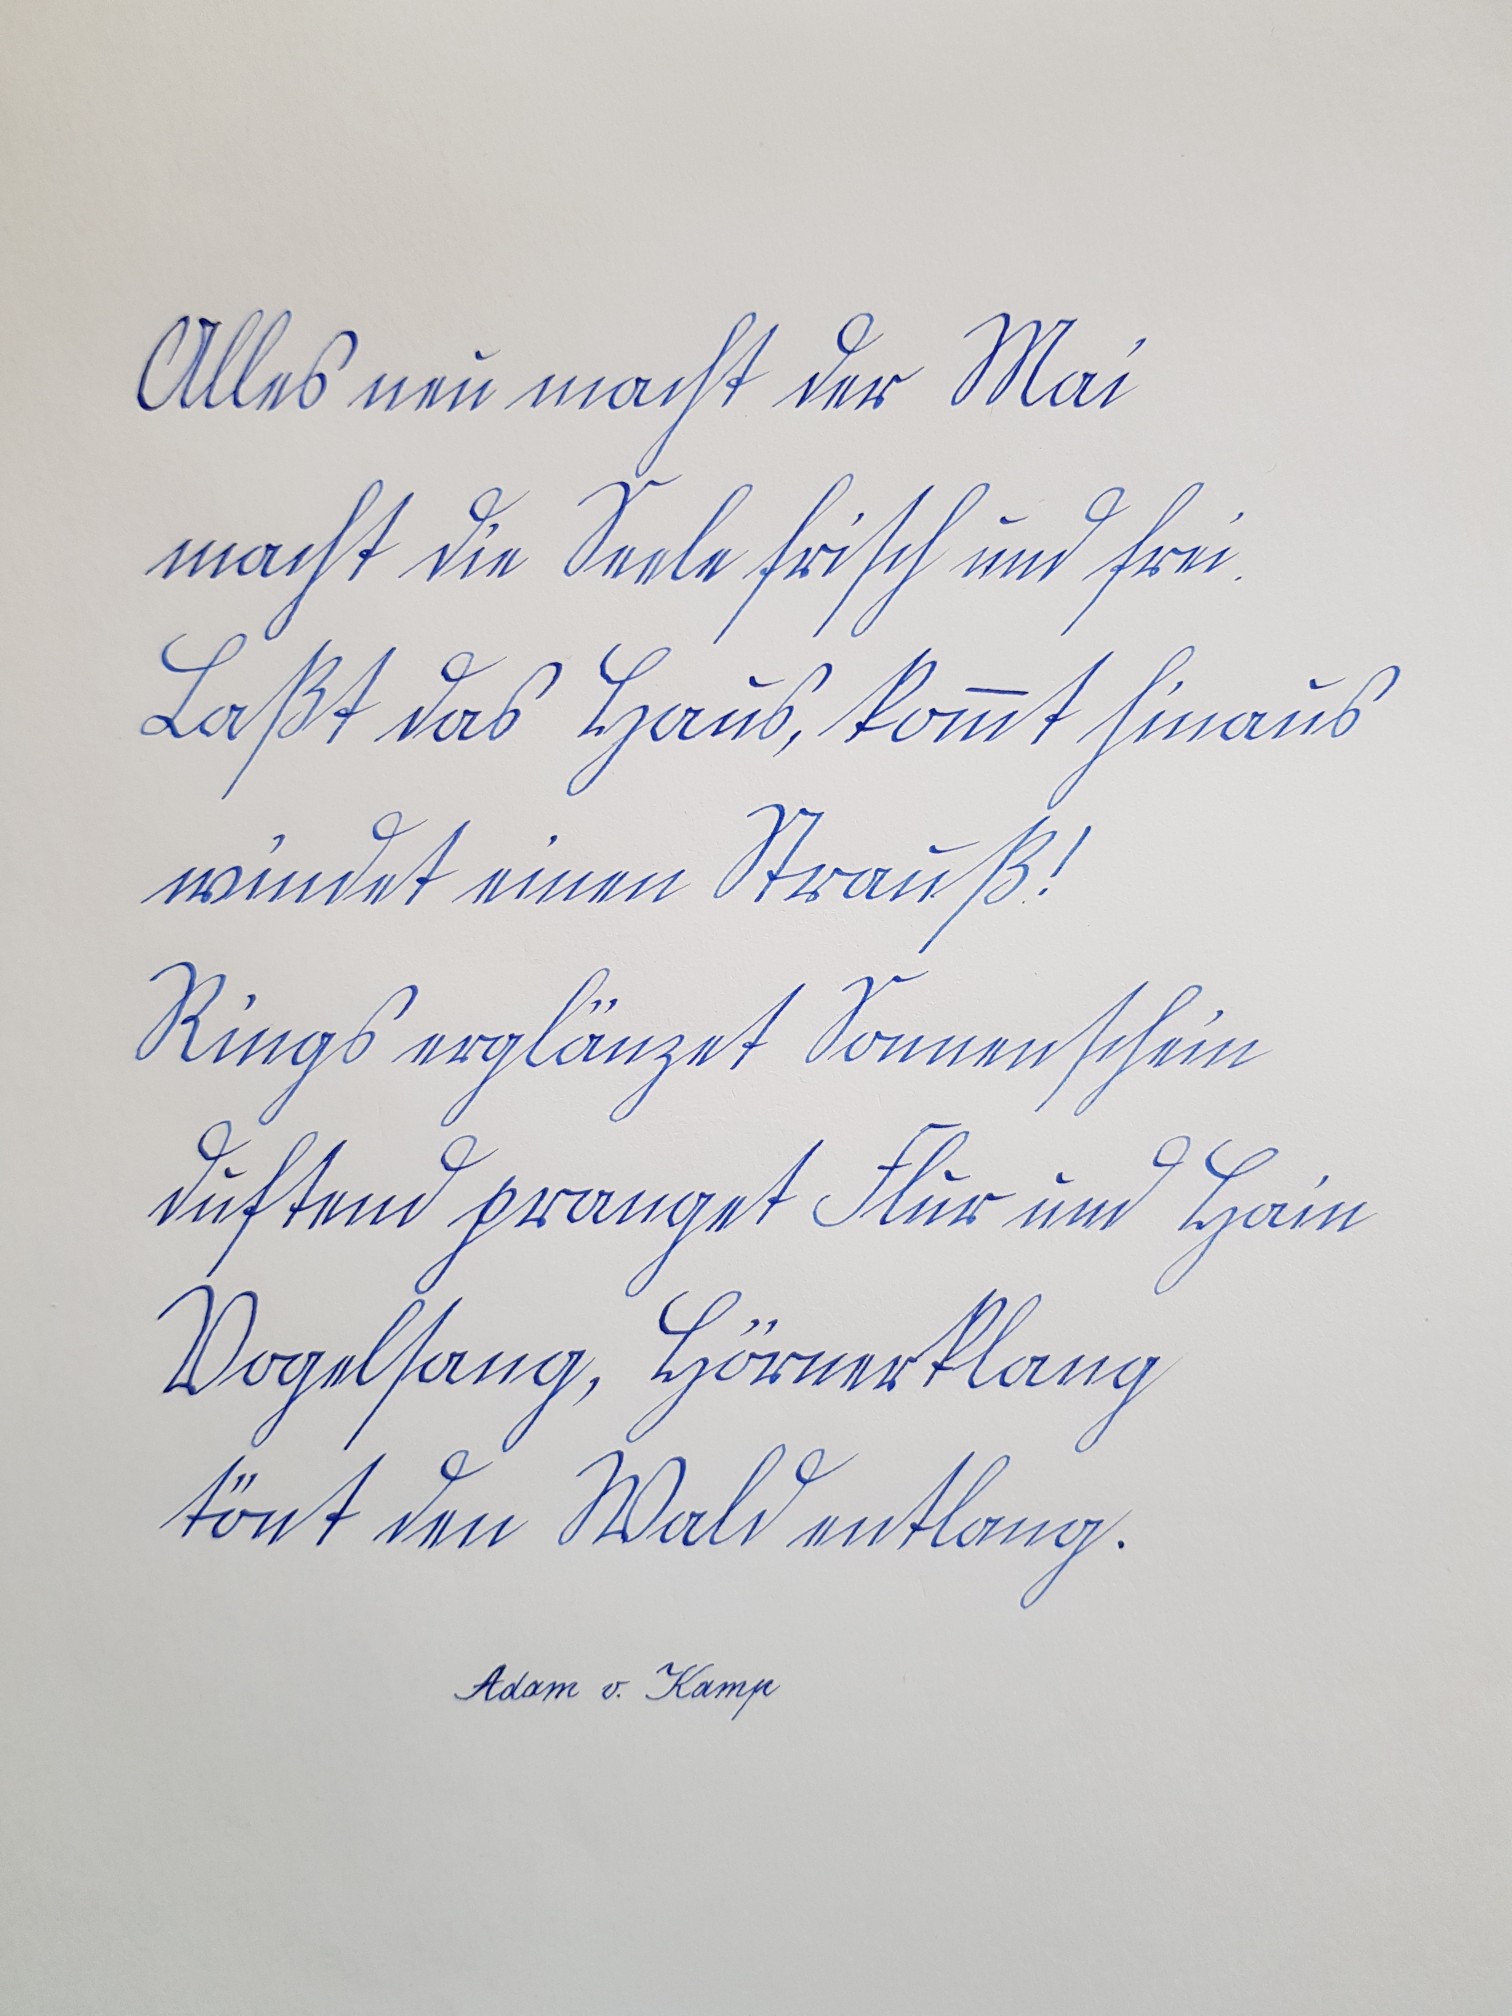 Alles neu macht der Mai
macht die Seele frisch und frei.
Laßt das Haus, kom̅t hinaus
windet einen Strauß!
Rings erglänzet Sonnenschein
duftend pranget Flur und Hain
Vogelsang, Hörnerklang
tönt den Wald entlang.
Adam v. Kamp